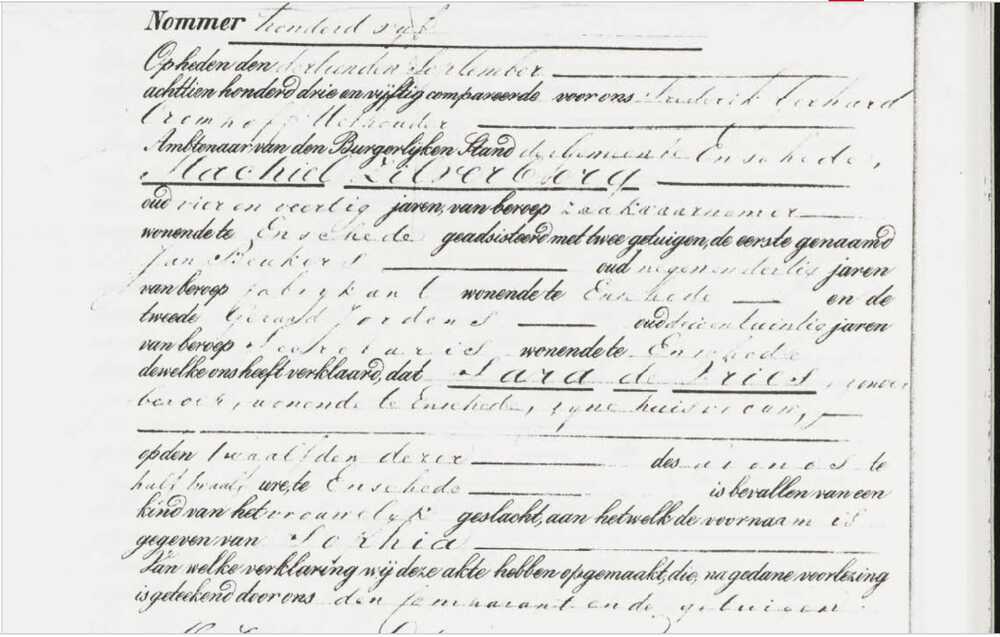 Nommer honderd vyf
Op heden den dertienden September
achttien honderd drie en vijftig compareerde voor ons Frederik Gerhard
Cromhoff Wethouder
Ambtenaar van den Burgerlijken Stand der Gemeente Enschede,
Machiel Zilverberg
oud vier en veertig jaren, van beroep zaakwaarnemer
wonende te Enschede geadsisteerd met twee getuigen, de eerste genaamd
Jan Beukers oud negenendertig jaren
van beroep fabrykant wonende te Enschede en de
tweede Gerard Jordens oud drieentwintig jaren
van beroep Secretaris wonende te Enschede
dewelke ons heeft verklaard, dat Sara de Vries, zonder
beroep, wonende te Enschede, zyne huisvrouw,
op den twaalfden dezer des avonds te
half twaalf ure, te Enschede is bevallen van een
kind van het vrouwelyk geslacht, aan hetwelk de voornaam is
gegeven van Sophia
Van welke verklaring wij deze akte hebben opgemaakt, die, na gedane voorlezing
is geteekend door ons den comparant en de getuigen.